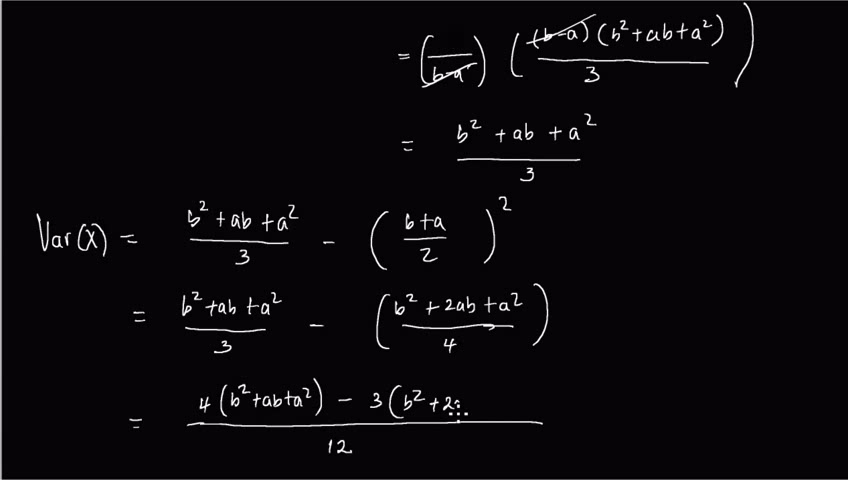 = ( / b-a ) ( (b-a)(b² + ab + a²) / 3 )
= b² + ab + a² / 3
Var(X) = b² + ab + a² / 3 - ( b+a / 2 )²
= b² + ab + a² / 3 - ( b² + 2ab + a² / 4 )
= 4(b² + ab + a²) - 3(b² + 2 / 12